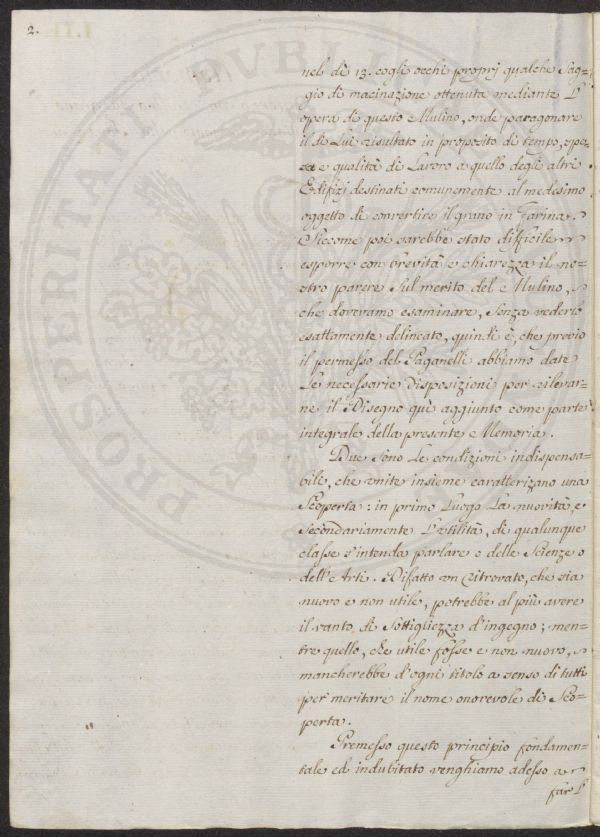 2.
PROSPERITATI PVBLI
nel dì 13. cogli occhi proprj qualche Sag=
gio di macinazione ottenuta mediante l'
opera di questo Mulino, onde paragonare
il di lui risultato in proposito di tempo, spe=
sa e qualità di Lavoro a quello degli altri
Edifizj destinati comunemente al medesimo
oggetto di convertire il grano in Farina.
Siccome poi sarebbe stato difficile
esporre con brevità e chiarezza il no=
stro parere sul merito del Mulino,
che dovevamo esaminare, senza vederlo
esattamente delineato, quindi è, che previo
il permesso del Paganelli abbiamo date
Le necessarie disposizioni per rilevar=
ne il Disegno quì aggiunto come parte
integrale della presente Memoria.
Due sono Le condizioni indispensa=
bili, che unite insieme caratterizano una
Scoperta: in primo Luogo La nuovità, e
secondariamente L'utilità, di qualunque
classe s'intenda parlare o delle Scienze o
dell'Arti. Difatto un ritrovato, che sia
nuovo e non utile, potrebbe al più avere
il vanto di Sottigliezza d'ingegno; men=
tre quello, che utile fosse e non nuovo,
mancherebbe d'ogni titolo a senso di tutti
per meritare il nome onorevole di Sco=
perta.
Premesso questo principio fondamen=
tale ed indubitato venghiamo adesso a
far l'